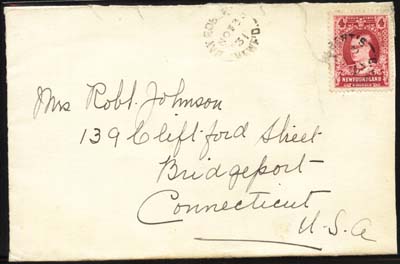 31
NEWFOUNDLAND
Mrs Robt. Johnson
139 Cliftford Street
Bridgeport
Connecticut
U.S.A